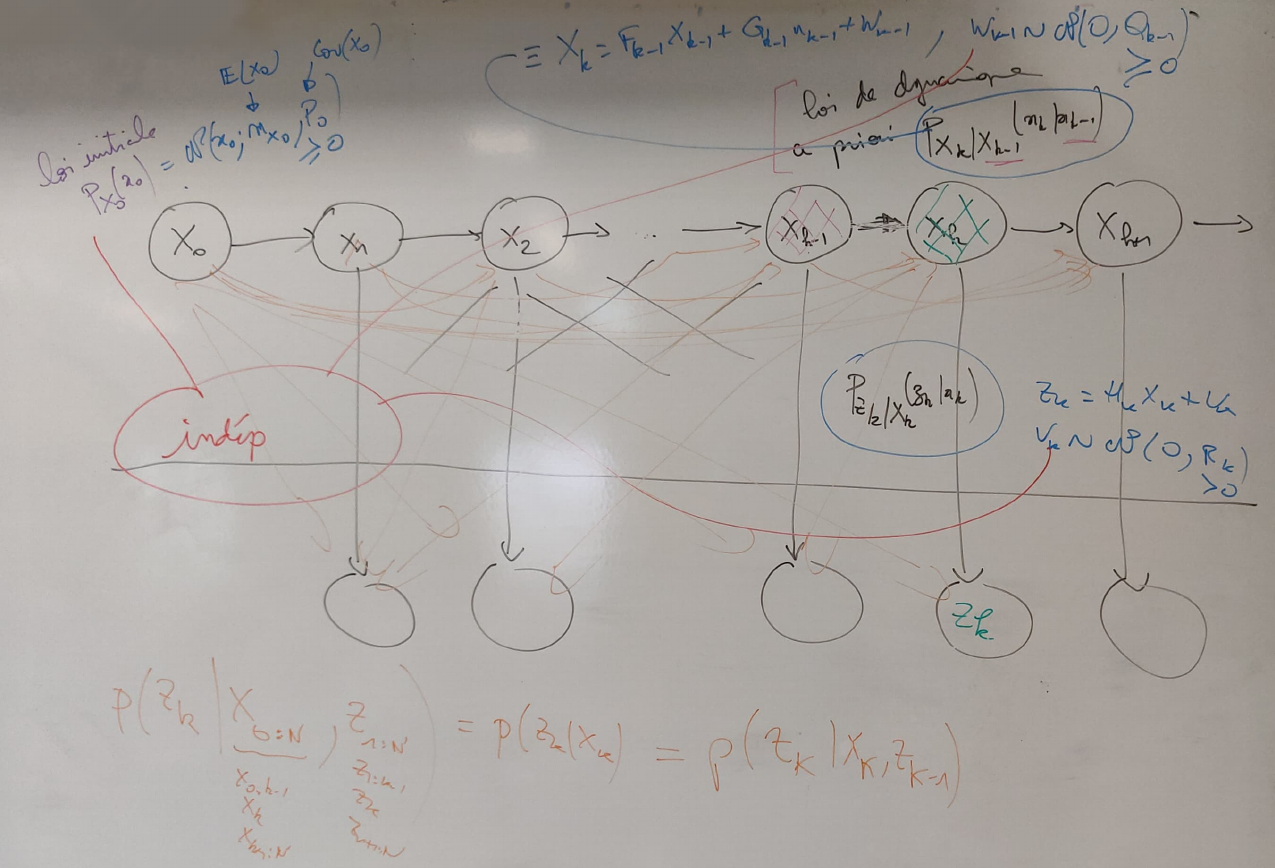 ≡ X_k = F_{k-1} X_{k-1} + G_{k-1} u_{k-1} + W_{k-1} , W_{k-1} ~ N(0, Q_{k-1})
≥ 0
E(X_0) Cov(X_0)
loi initiale
P_{X_0}(x_0) = N(x_0; m_{X_0}, P_0)
≥ 0
loi de dynamique
a priori P_{X_k|X_{k-1}}(x_k|x_{k-1})
X_0 X_1 X_2 ... X_{k-1} X_k X_{k+1}
P_{Z_k|X_k}(z_k|x_k)
Z_k = H_k X_k + V_k
V_k ~ N(0, R_k)
> 0
indép
Z_k
p(Z_k | X_{0:N}, Z_{1:N}) = p(Z_k|X_k) = p(Z_k | X_k, Z_{k-1})
X_{0:k-1} Z_{1:k-1}
X_k Z_k
X_{k+1:N} Z_{k+1:N}